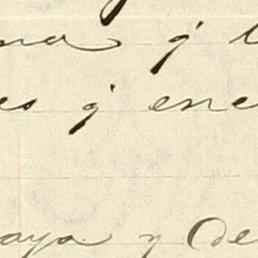 na q
es q ene
aya y De